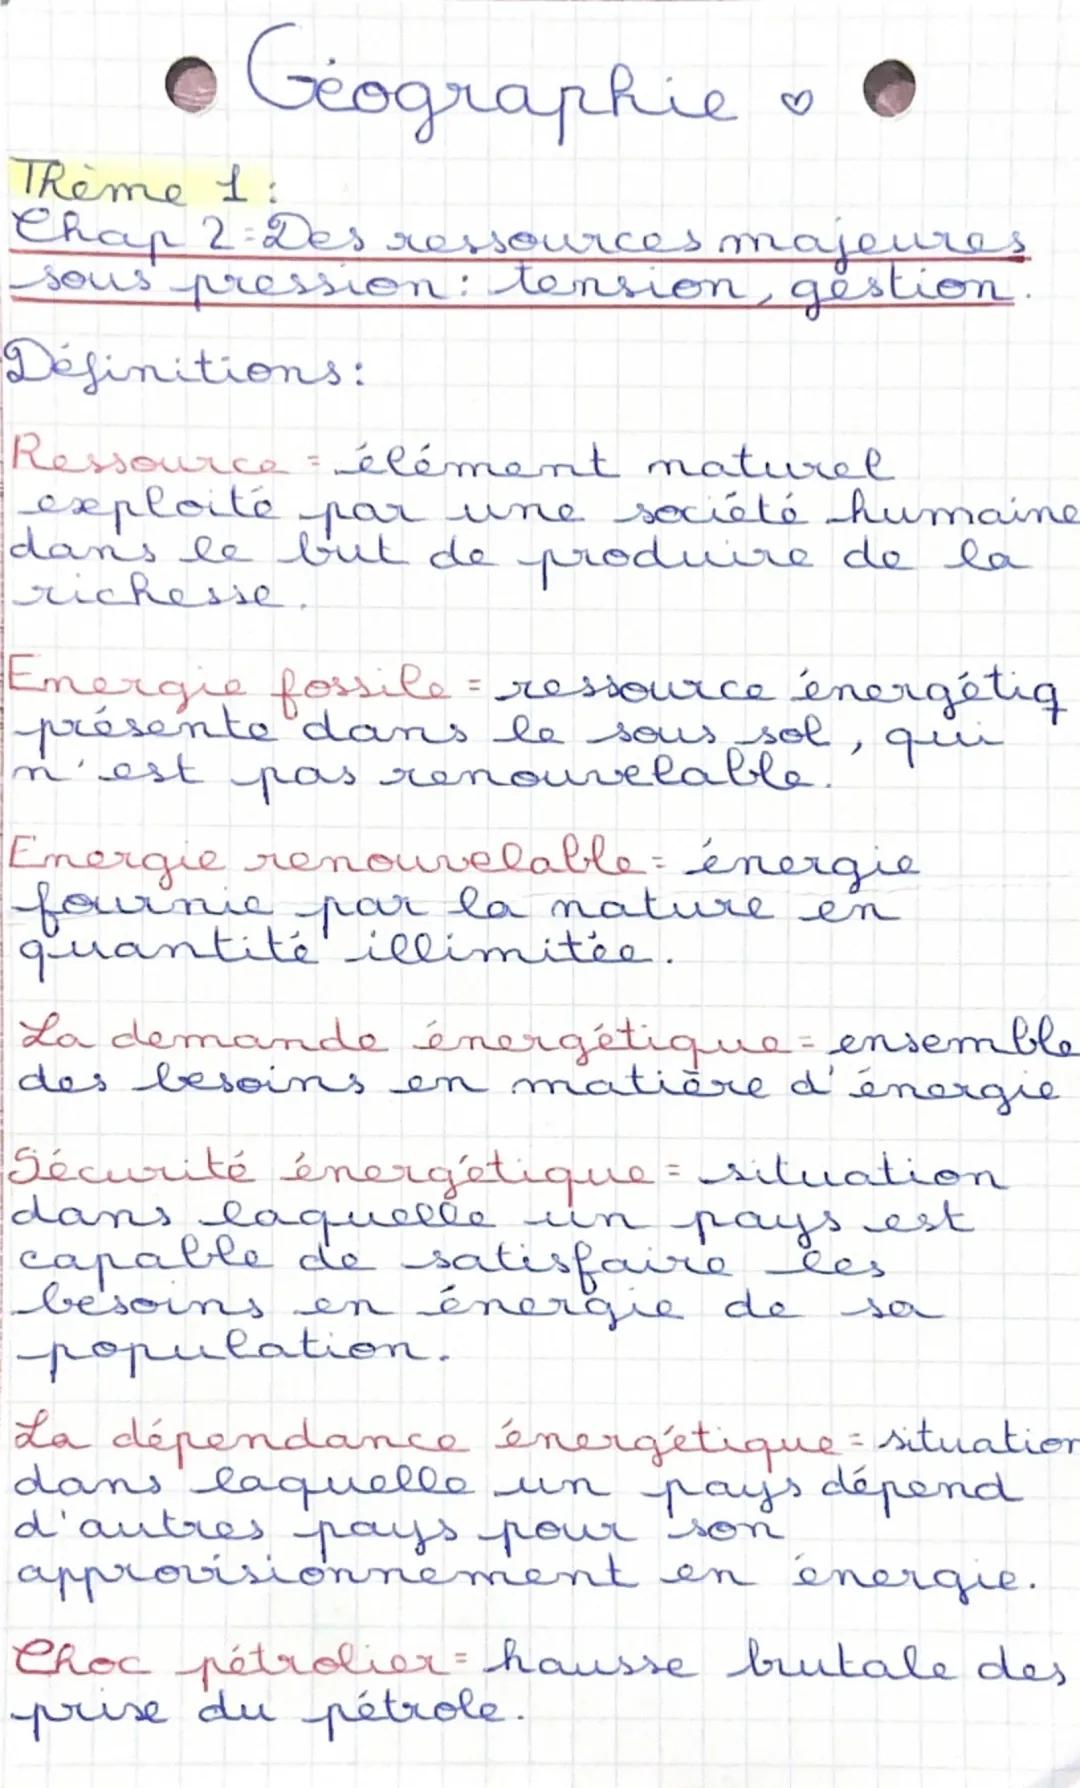 Géographie ♡
Thème 1 :
Chap 2 : Des ressources majeures
sous pression : tension, gestion.
Définitions :
Ressource = élément naturel
exploité par une société humaine
dans le but de produire de la
richesse.
Energie fossile = ressource énergétiq
présente dans le sous sol, qui
n'est pas renouvelable.
Energie renouvelable = énergie
fournie par la nature en
quantité illimitée.
La demande énergétique = ensemble
des besoins en matière d'énergie
Sécurité énergétique = situation
dans laquelle un pays est
capable de satisfaire les
besoins en énergie de sa
population.
La dépendance énergétique = situation
dans laquelle un pays dépend
d'autres pays pour son
approvisionnement en énergie.
Choc pétrolier = hausse brutale des
prise du pétrole.